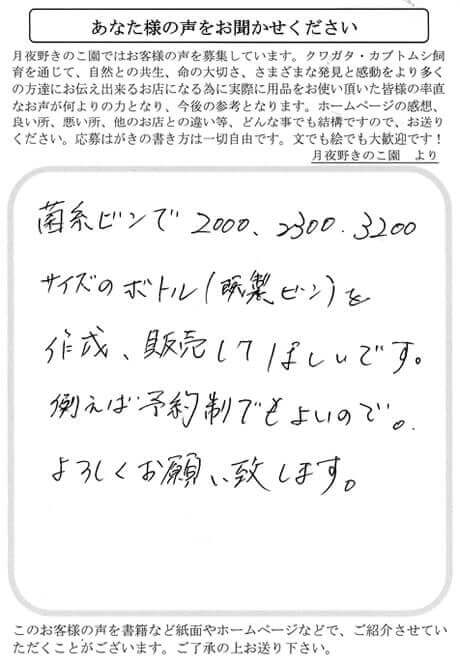 あなた様の声をお聞かせください
月夜野きのこ園ではお客様の声を募集しています。クワガタ・カブトムシ飼
育を通じて、自然との共生、命の大切さ、さまざまな発見と感動をより多く
の方達にお伝え出来るお店になる為に実際に用品をお使い頂いた皆様の率直
なお声が何よりの力となり、今後の参考となります。ホームページの感想、
良い所、悪い所、他のお店との違い等、どんな事でも結構ですので、お送り
ください。応募はがきの書き方は一切自由です。文でも絵でも大歓迎です！
月夜野きのこ園　より
菌糸ビンで 2000、2300.3200
サイズのボトル(既製ビン)を
作成、販売してほしいです。
例えば予約制でもよいので。
よろしくお願い致します。
このお客様の声を書籍など紙面やホームページなどで、ご紹介させてい
ただくことがございます。ご了承の上お送り下さい。